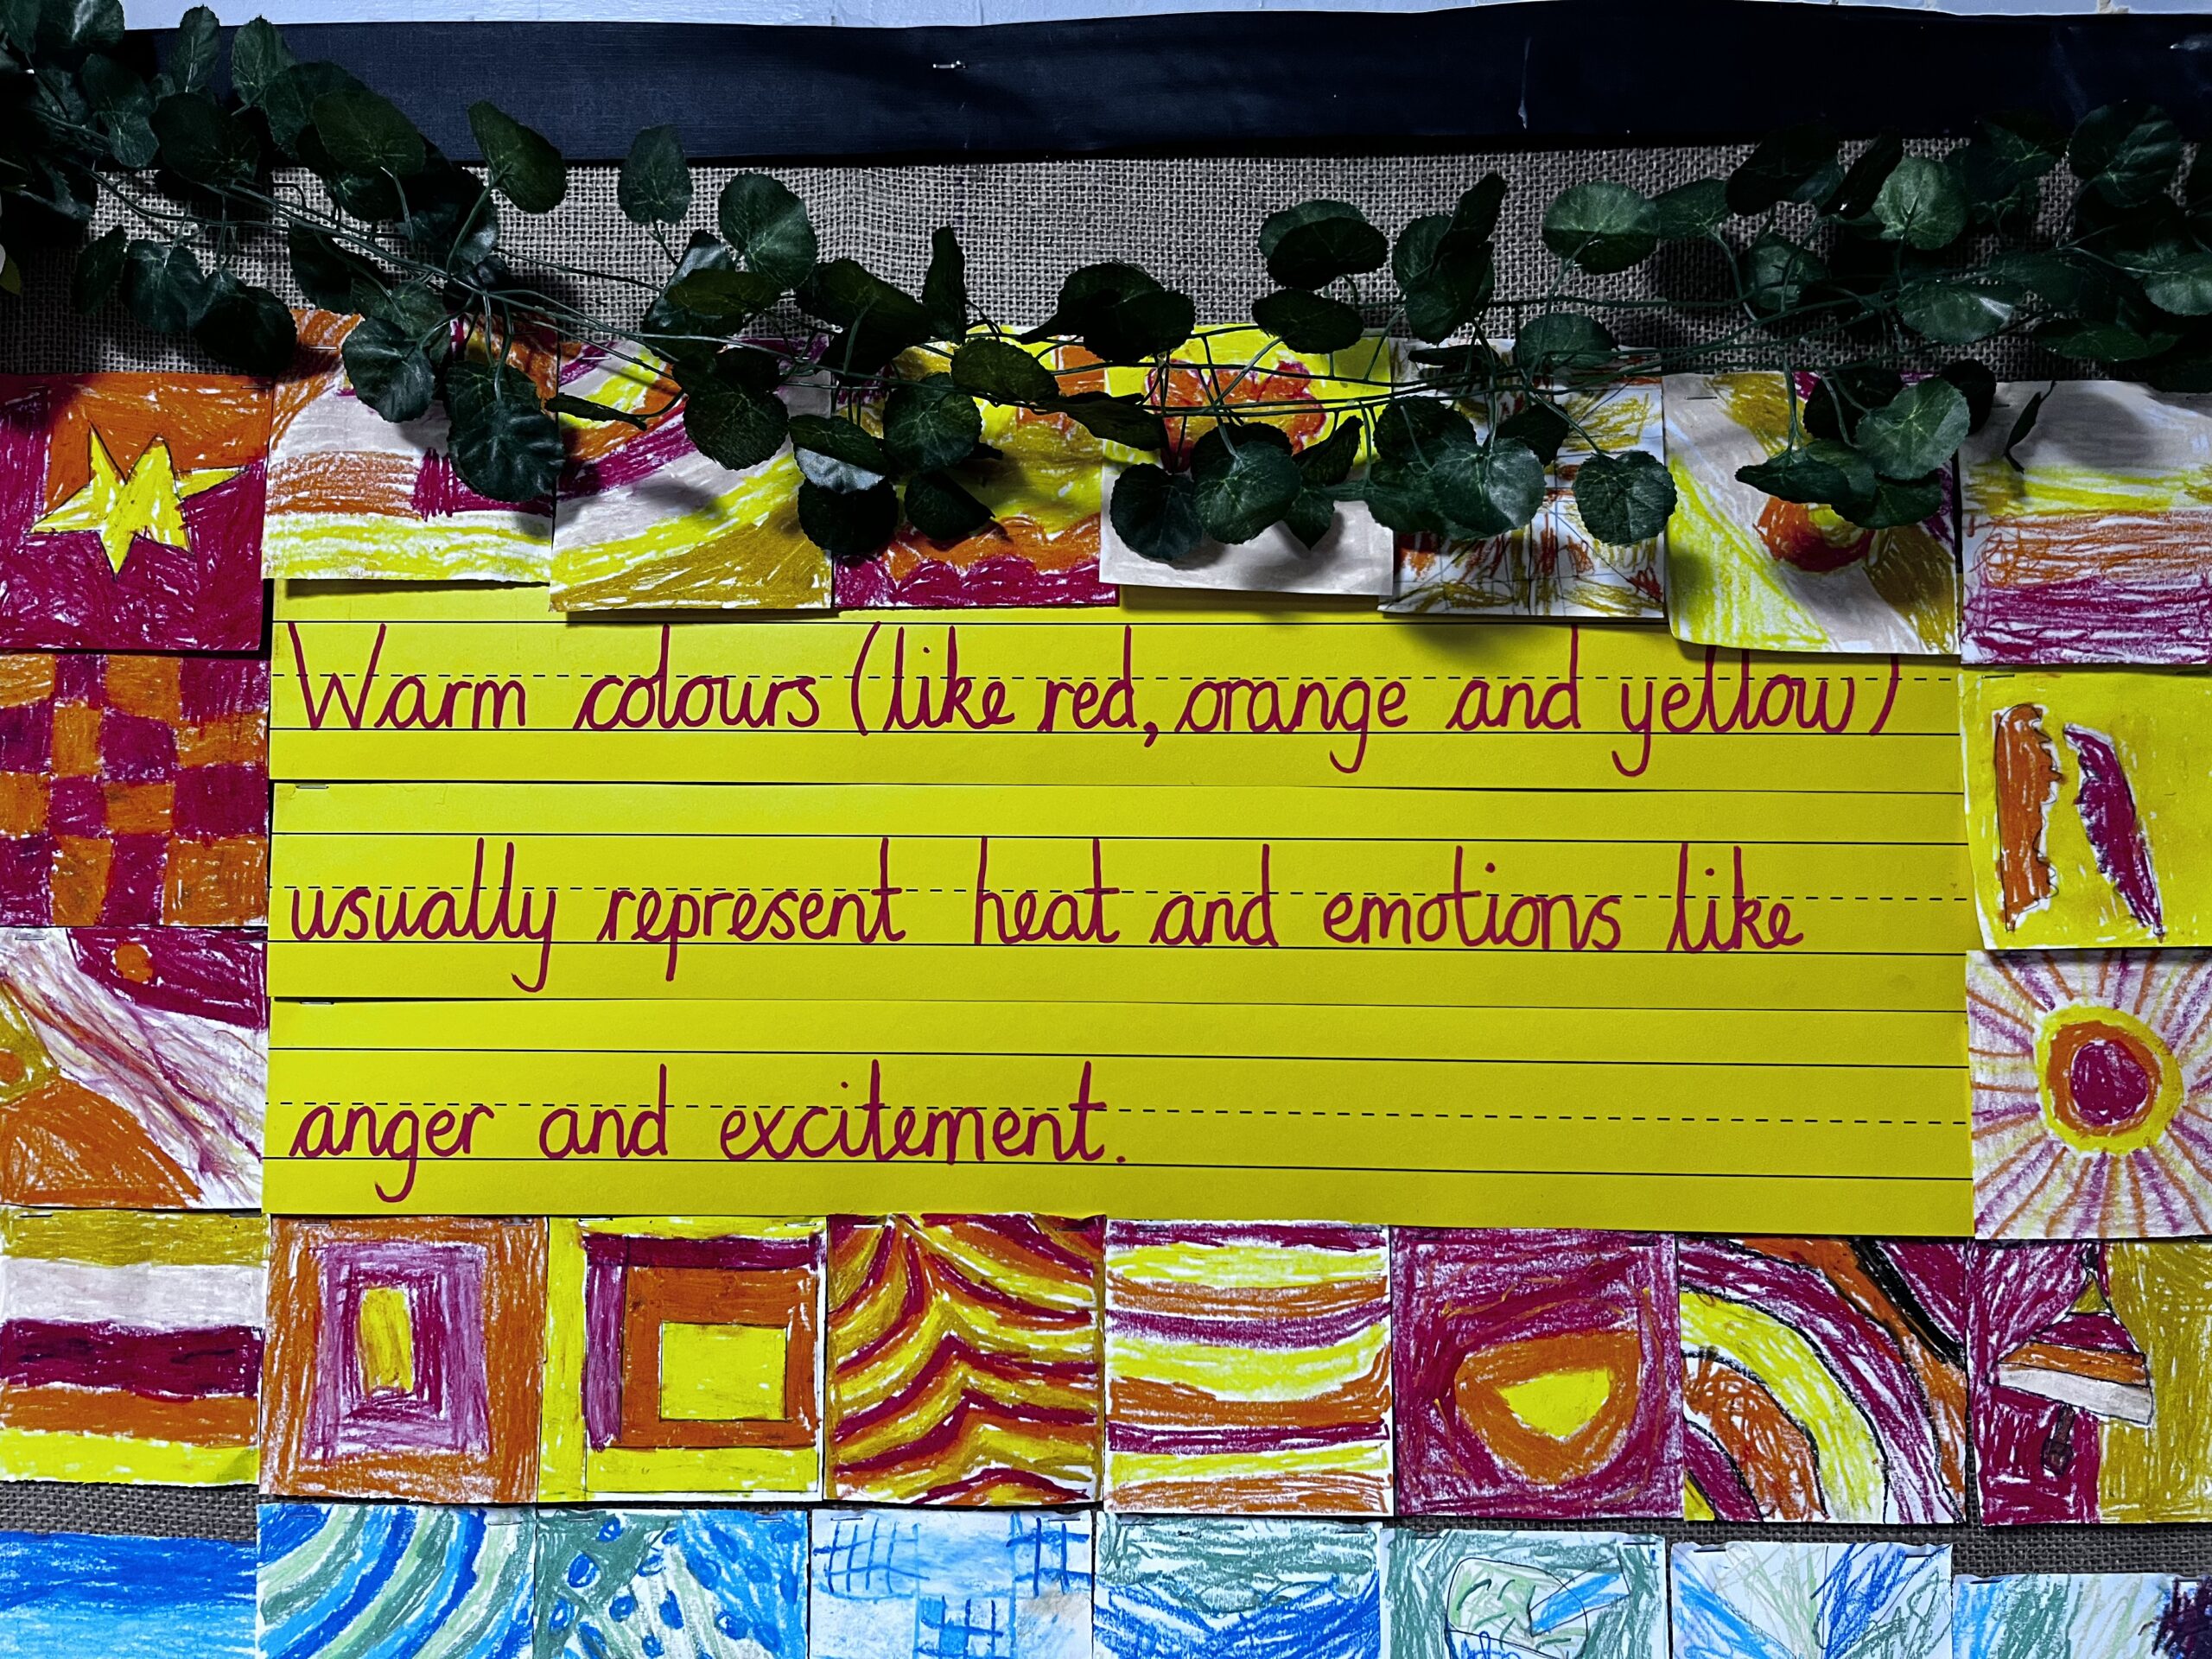 Warm colours (like red, orange and yellow)
usually represent heat and emotions like
anger and excitement.